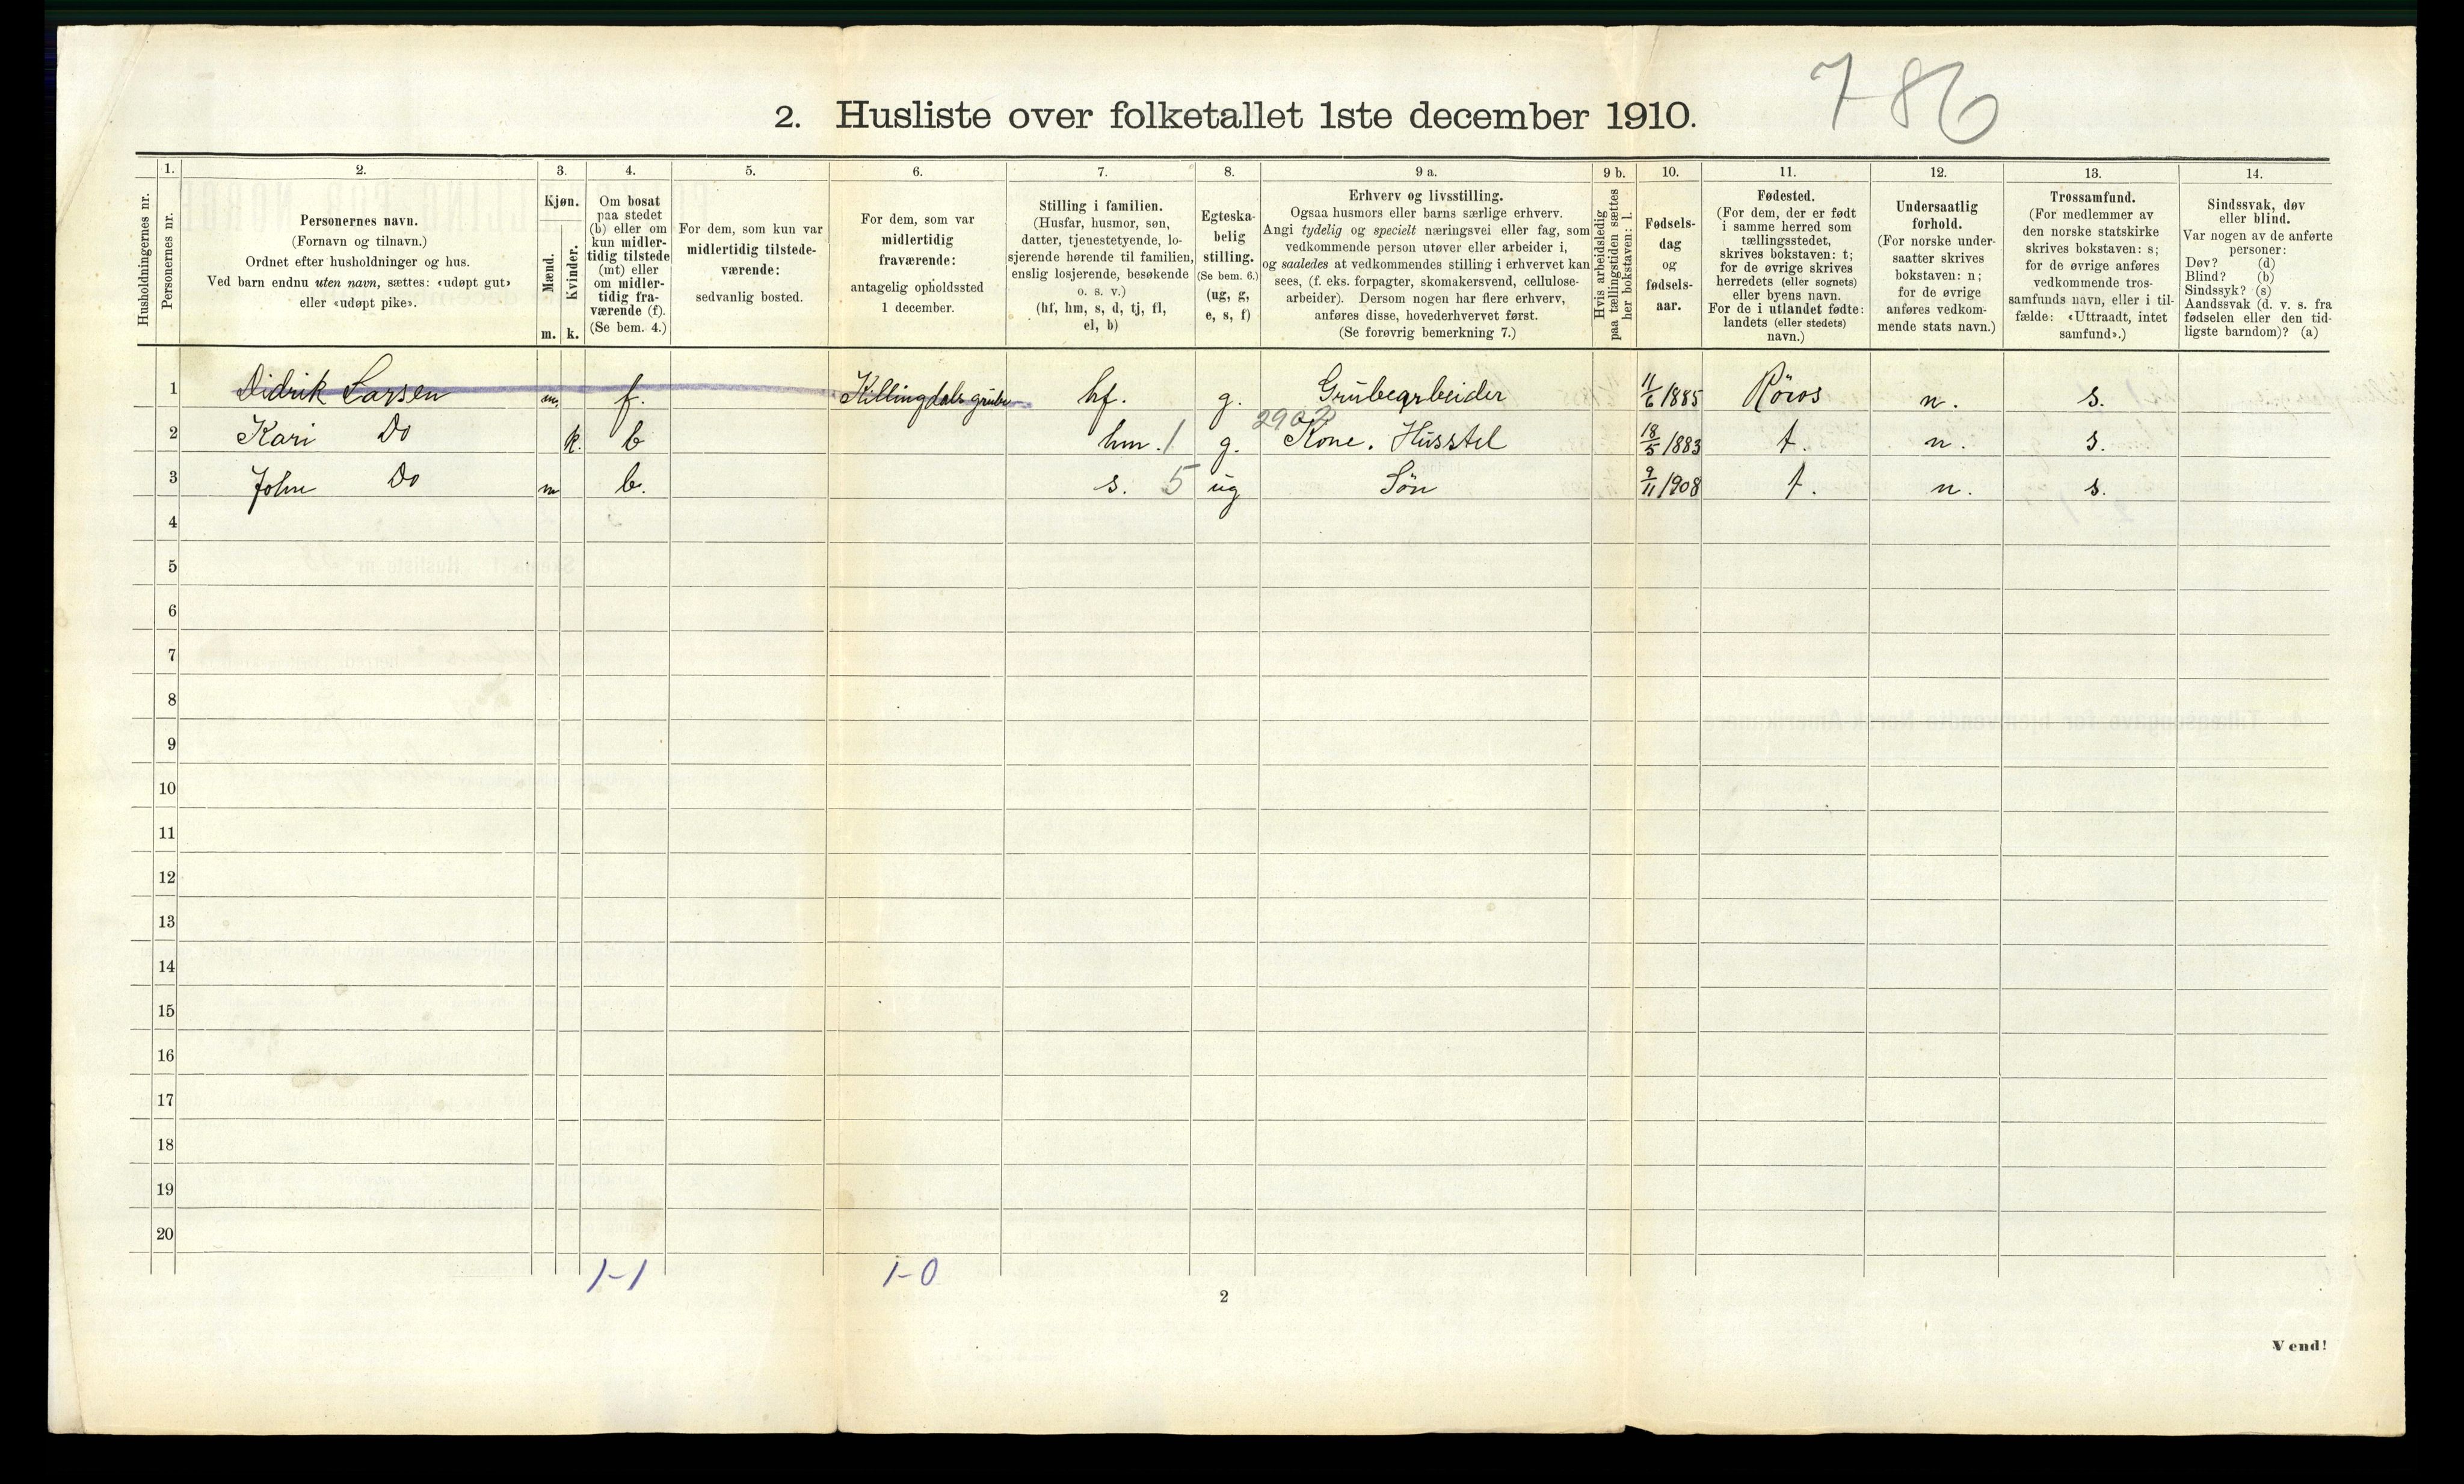 786
2. Husliste over folketallet 1ste december 1910.
Husholdningernes nr.
1.
Personernes nr.
2.
Personernes navn.
(Fornavn og tilnavn.)
Ordnet efter husholdninger og hus.
Ved barn endnu uten navn, sættes: «udøpt gut»
eller «udøpt pike».
3.
Kjøn.
Mænd.
Kvinder.
m. k.
4.
Om bosat
paa stedet
(b) eller om
kun midler-
tidig tilstede
(mt) eller
om midler-
tidig fra-
værende (f).
(Se bem. 4.)
5.
For dem, som kun var
midlertidig tilstede-
værende:
sedvanlig bosted.
6.
For dem, som var
midlertidig
fraværende:
antagelig opholdssted
1 december.
7.
Stilling i familien.
(Husfar, husmor, søn,
datter, tjenestetyende, lo-
sjerende hørende til familien,
enslig losjerende, besøkende
o. s. v.)
(hf, hm, s, d, tj, fl,
el, b)
8.
Egteska-
belig
stilling.
(Se bem. 6.)
(ug, g,
e, s, f)
9 a.
Erhverv og livsstilling.
Ogsaa husmors eller barns særlige erhverv.
Angi tydelig og specielt næringsvei eller fag, som
vedkommende person utøver eller arbeider i,
og saaledes at vedkommendes stilling i erhvervet kan
sees, (f. eks. forpagter, skomakersvend, cellulose-
arbeider). Dersom nogen har flere erhverv,
anføres disse, hovederhvervet først.
(Se forøvrig bemerkning 7.)
9 b.
Hvis arbeidsledig
paa tællingstiden sættes
her bokstaven: l.
10.
Fødsels-
dag
og
fødsels-
aar.
11.
Fødested.
(For dem, der er født
i samme herred som
tællingsstedet,
skrives bokstaven: t;
for de øvrige skrives
herredets (eller sognets)
eller byens navn.
For de i utlandet fødte:
landets (eller stedets)
navn.)
12.
Undersaatlig
forhold.
(For norske under-
saatter skrives
bokstaven: n;
for de øvrige
anføres vedkom-
mende stats navn.)
13.
Trossamfund.
(For medlemmer av
den norske statskirke
skrives bokstaven: s;
for de øvrige anføres
vedkommende tros-
samfunds navn, eller i til-
fælde: «Uttraadt, intet
samfund».)
14.
Sindssvak, døv
eller blind.
Var nogen av de anførte
personer:
Døv? (d)
Blind? (b)
Sindssyk? (s)
Aandssvak (d. v. s. fra
fødselen eller den tid-
ligste barndom)? (a)
1 Didrik Larsen m. f. Killingdals grube hf. g. Grubearbeider 11/6 1885 Röros n. s.
2902
2 Kari Do k. b hm. 1 g. Kone. Husstel 18/5 1883 t. n. s.
3 John Do m b. s. 5 ug Søn 9/11 1908 t. n. s.
4
5
6
7
8
9
10
11
12
13
14
15
16
17
18
19
20
1-1 1-0
2
Vend!